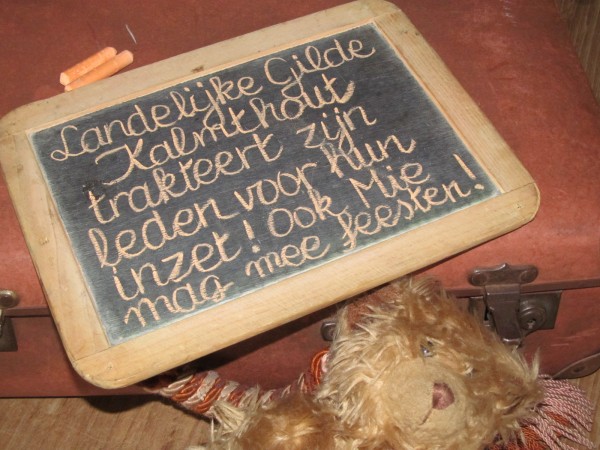 Landelijke Gilde
Kalmthout
trakteert zijn
leden voor hun
inzet! Ook Mie
mag mee feesten!